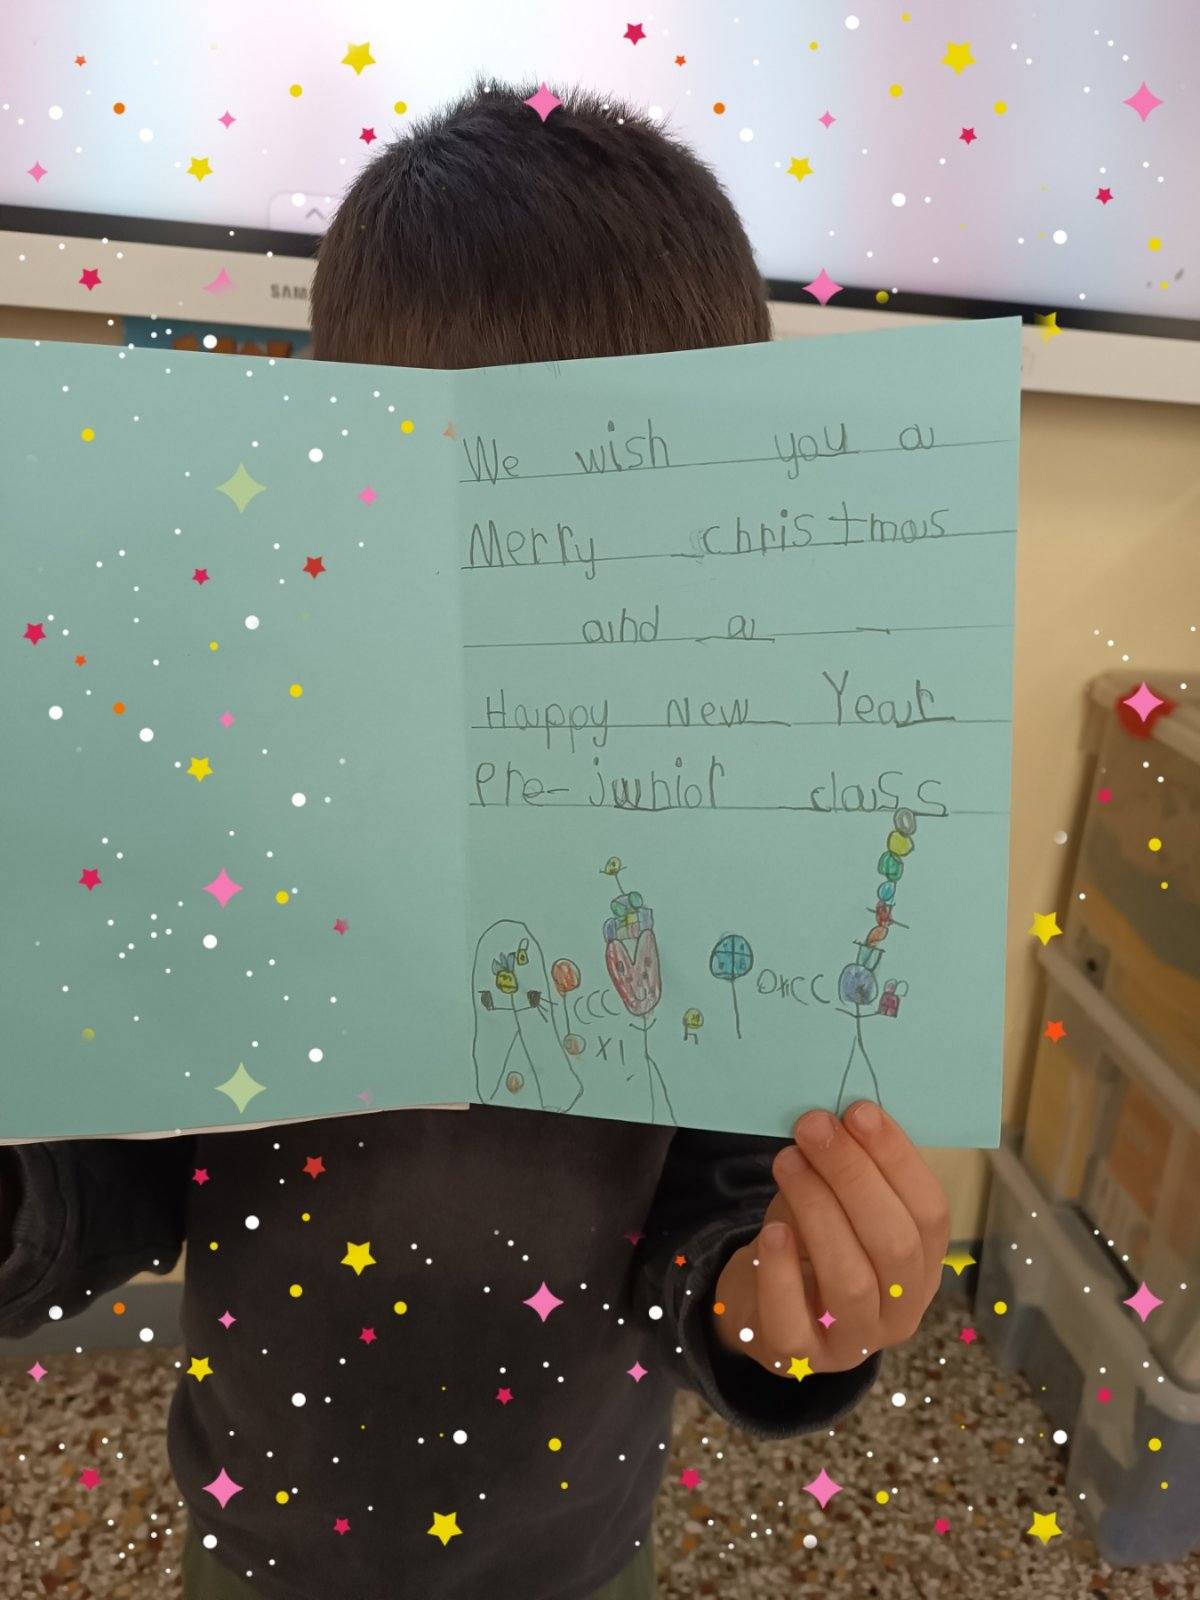 SAM
We wish you a
Merry christmas
and a
Happy new Year
Pre-junior class